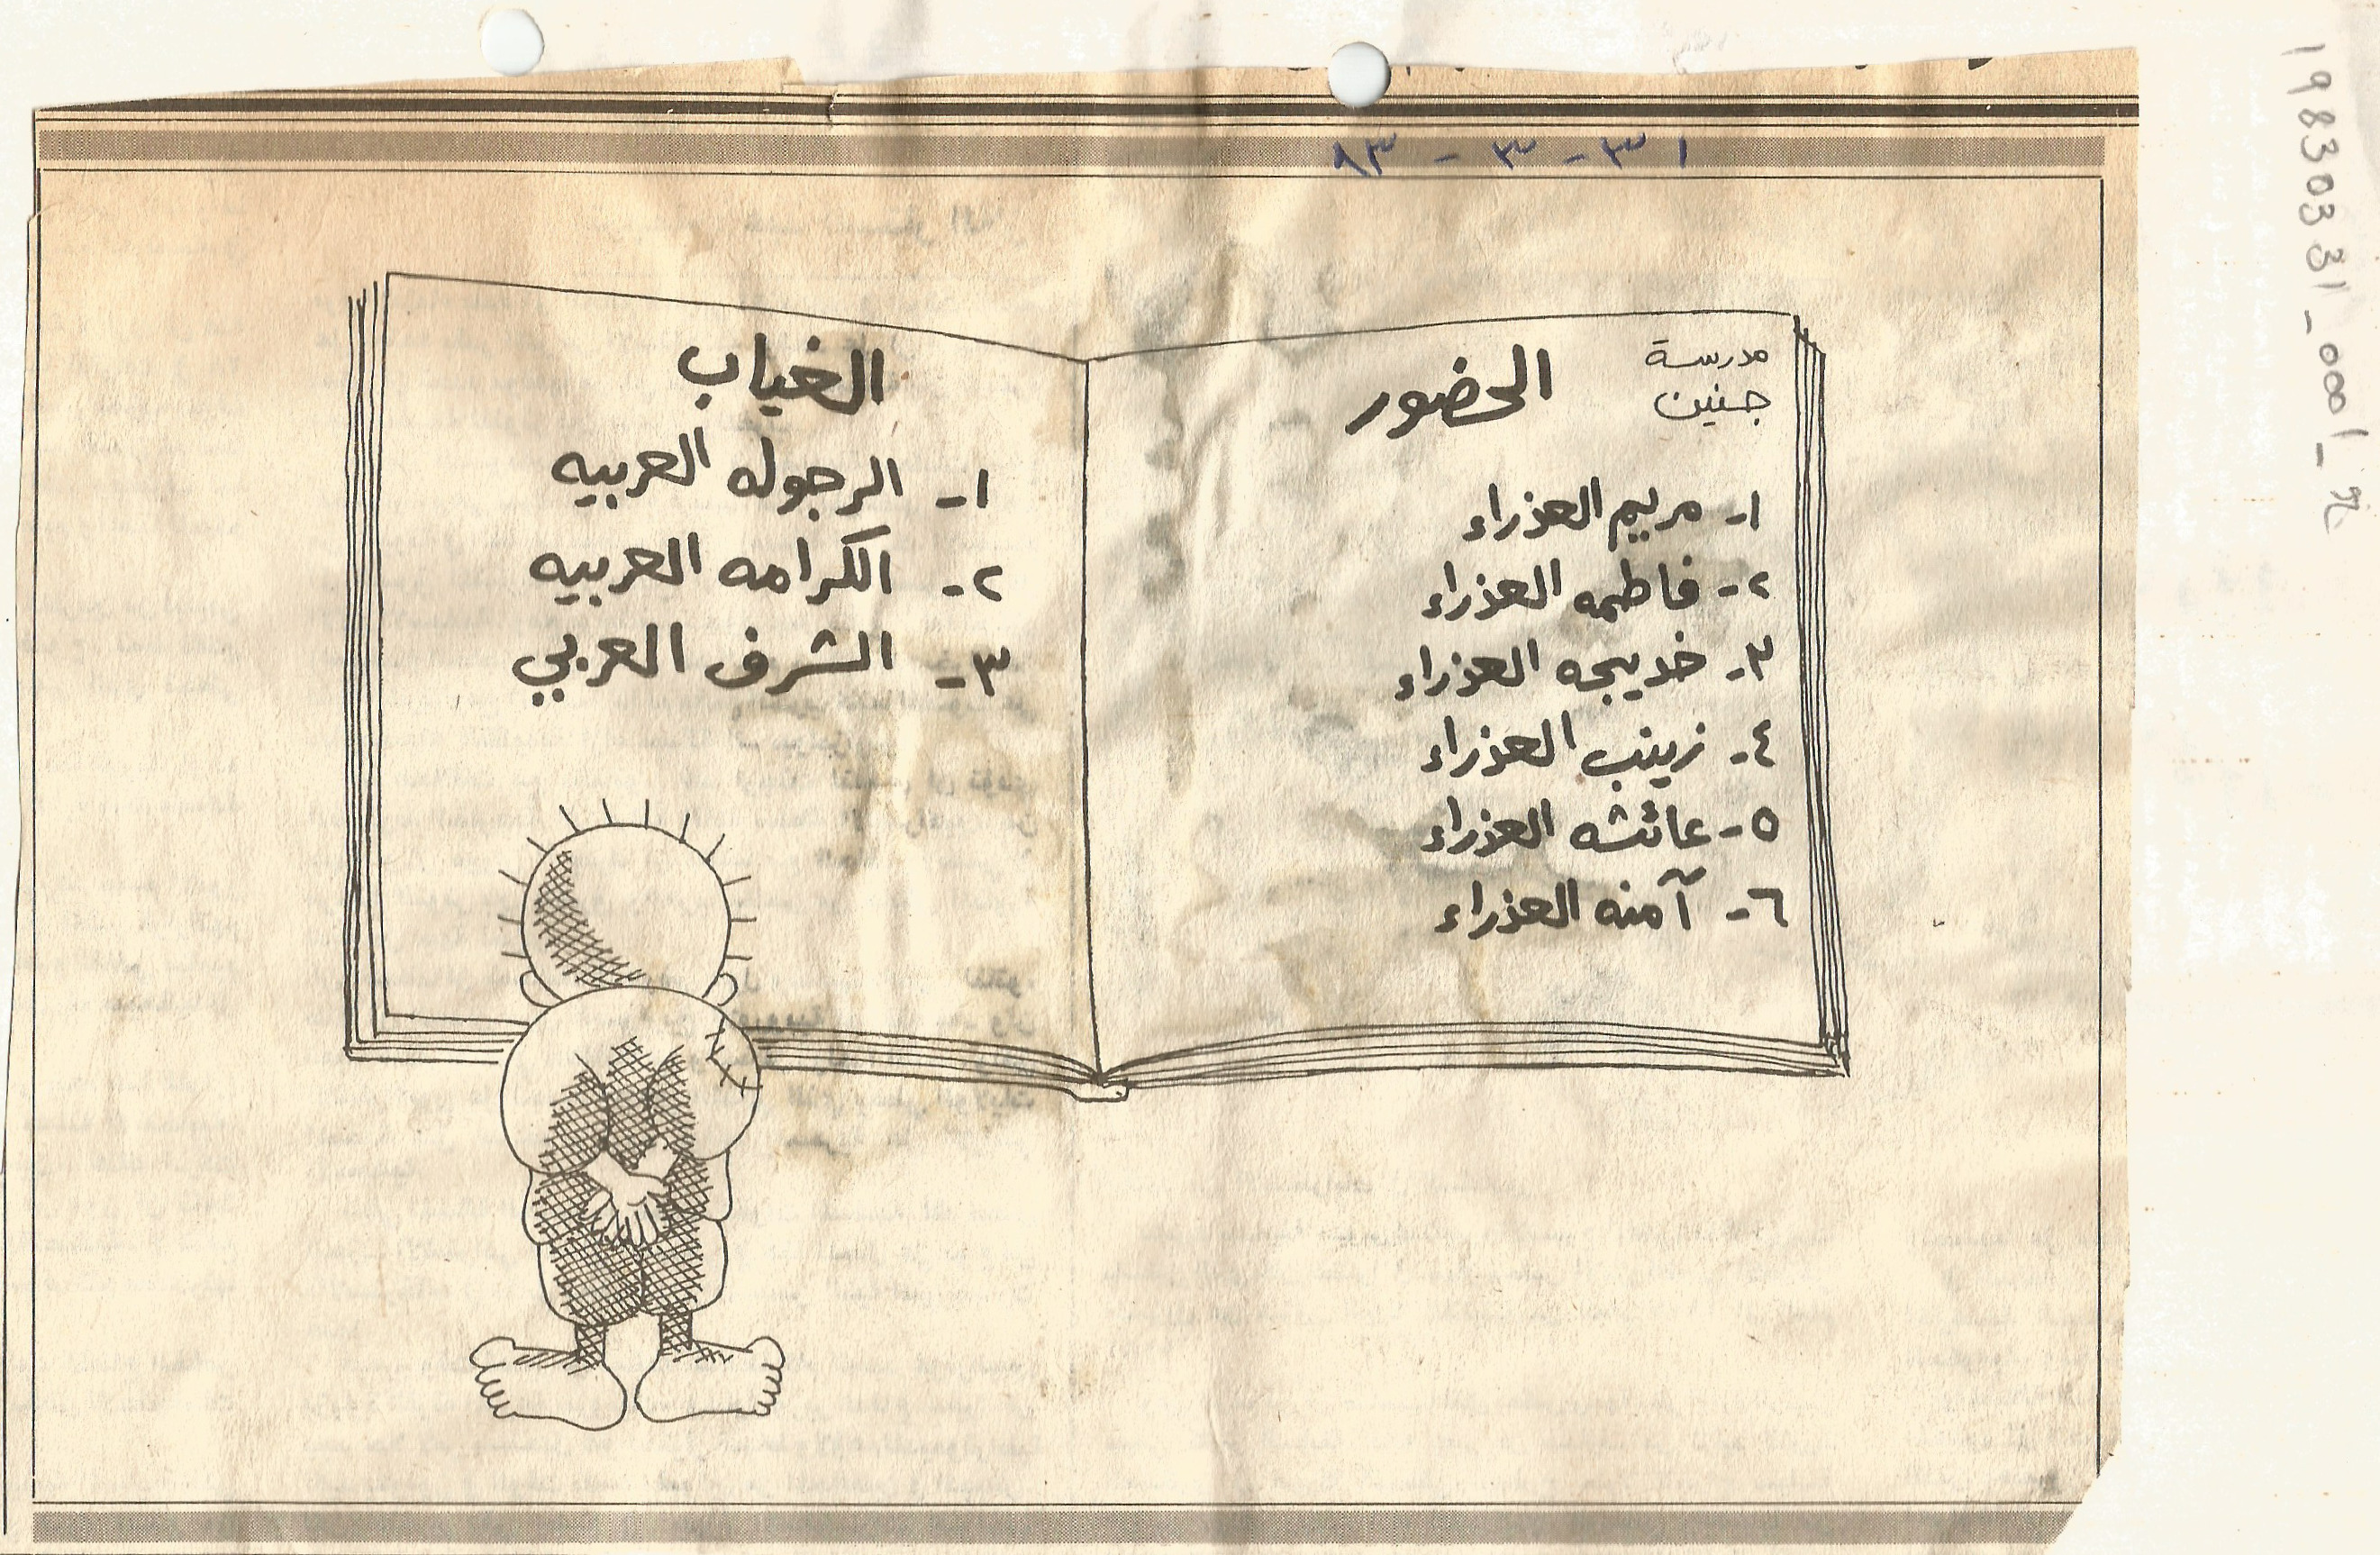 ٣١ - ٣ - ٨٣
مدرسة
جنين
الحضور
١- مريم العذراء
٢- فاطمه العذراء
٣- خديجه العذراء
٤- زينب العذراء
٥- عائشه العذراء
٦- آمنه العذراء
الغياب
١- الرجوله العربيه
٢- الكرامه العربيه
٣- الشرف العربي
19830331_0001_